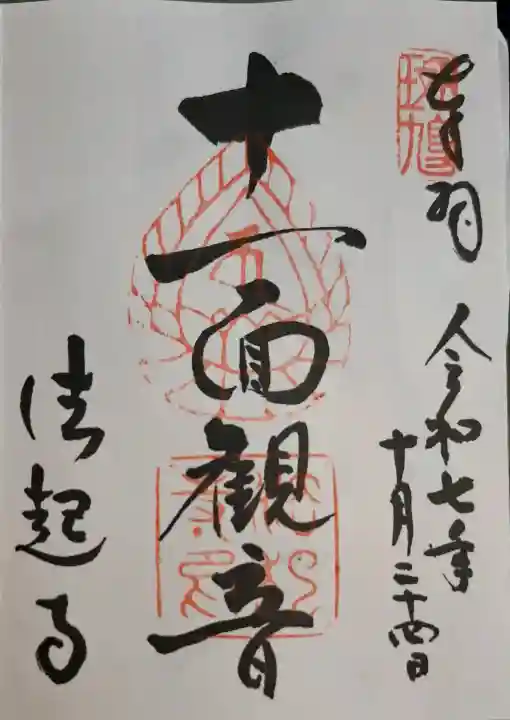 奉拝 令和七年
十月二十四日
十一面観音
法起寺
斑鳩